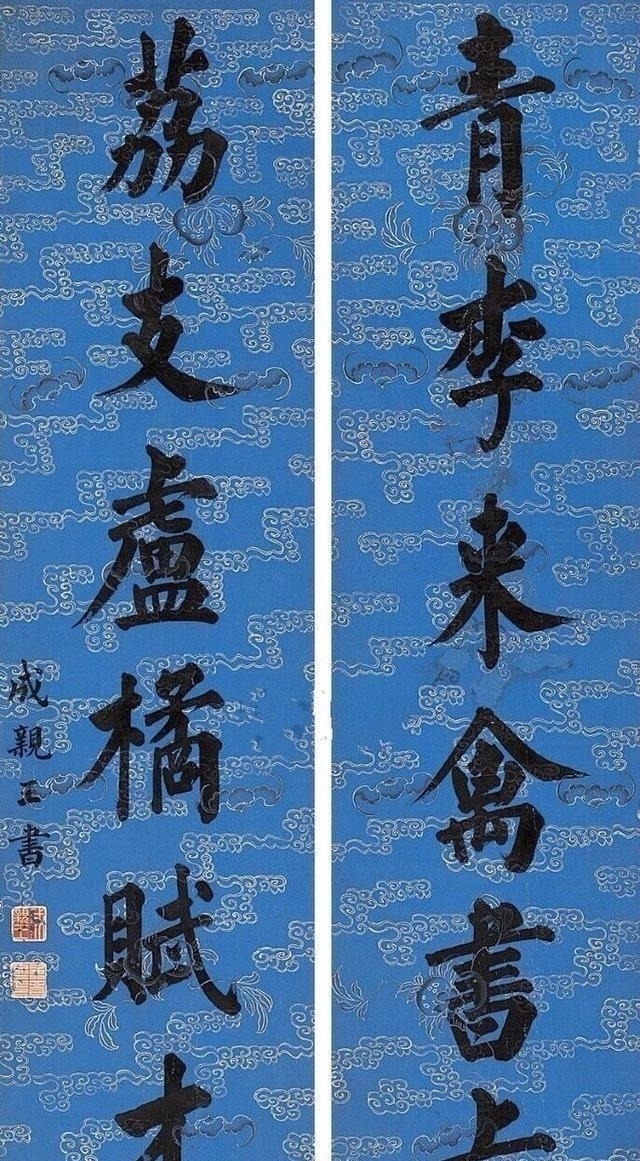 青李来禽書
荔支盧橘賦
成親王書